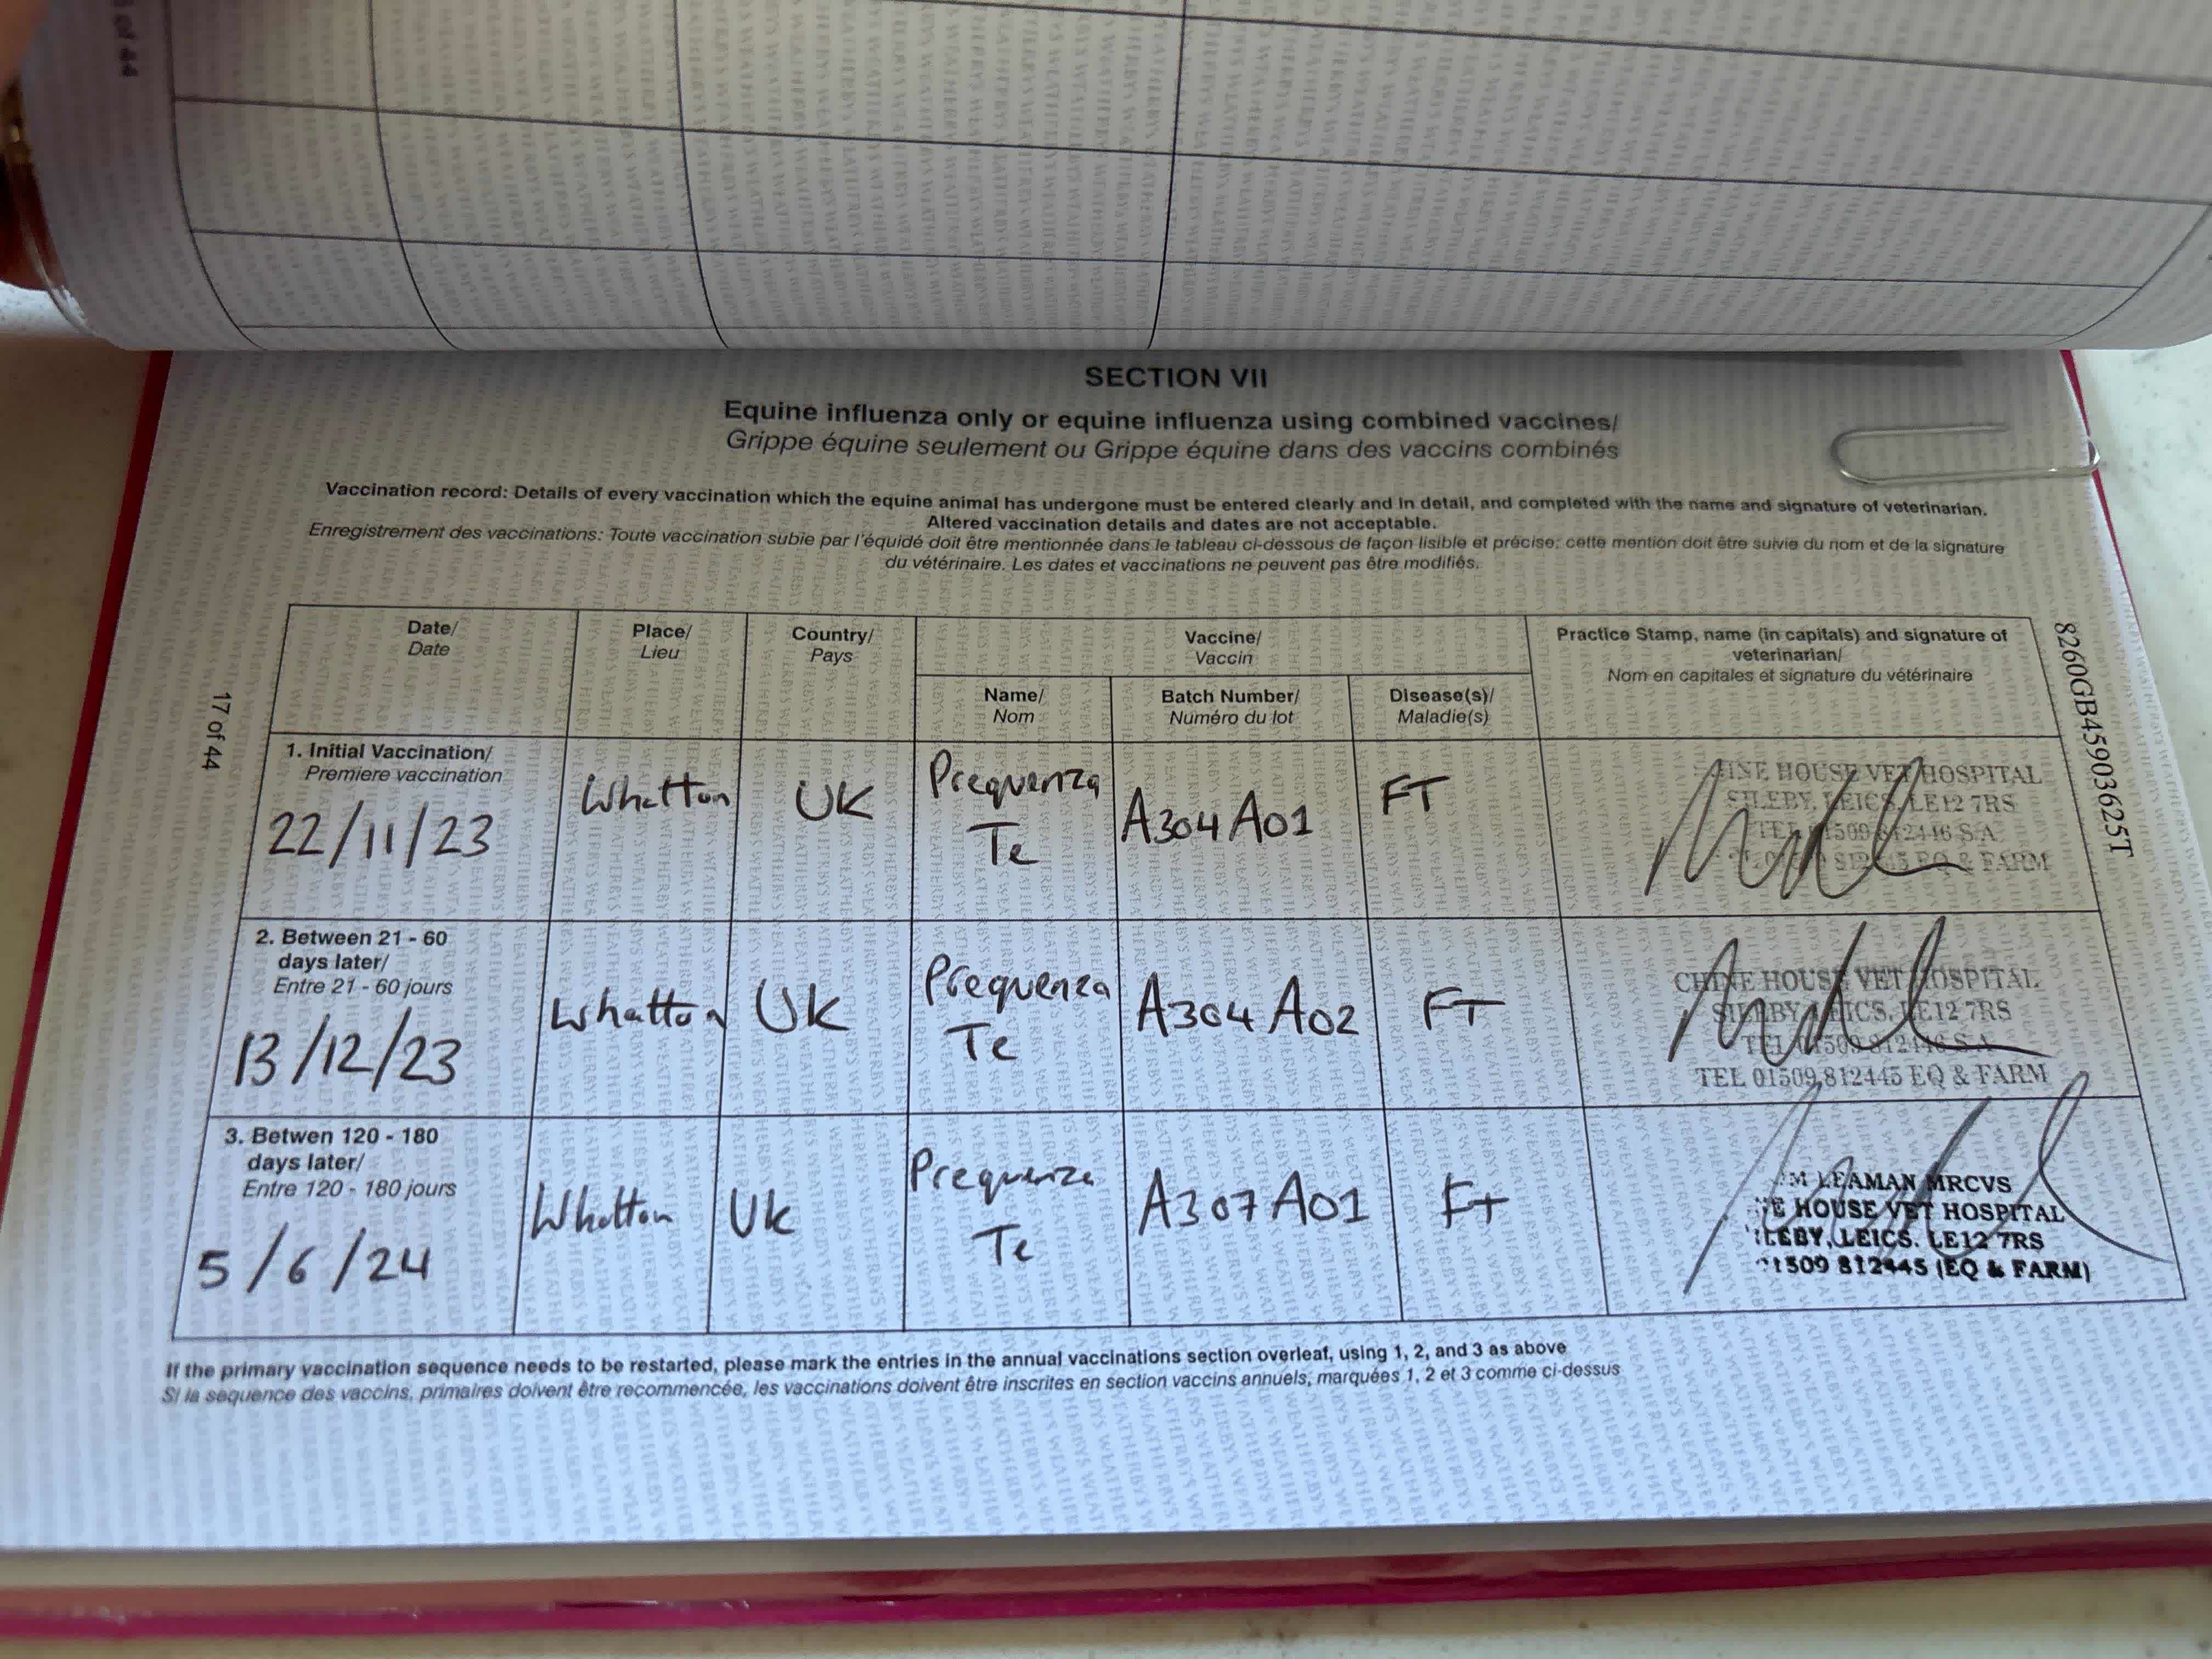 SECTION VII
Equine influenza only or equine influenza using combined vaccines/
Grippe équine seulement ou Grippe équine dans des vaccins combinés
Vaccination record: Details of every vaccination which the equine animal has undergone must be entered clearly and in detail, and completed with the name and signature of veterinarian.
Altered vaccination details and dates are not acceptable.
Enregistrement des vaccinations: Toute vaccination subie par l'équidé doit être mentionnée dans le tableau ci-dessous de façon lisible et précise; cette mention doit être suivie du nom et de la signature
du vétérinaire. Les dates et vaccinations ne peuvent pas être modifiés.
Date/
Date
Place/
Lieu
Country/
Pays
Vaccine/
Vaccin
Name/
Nom
Batch Number/
Numéro du lot
Disease(s)/
Maladie(s)
Practice Stamp, name (in capitals) and signature of
veterinarian/
Nom en capitales et signature du vétérinaire
1. Initial Vaccination/
Premiere vaccination
22/11/23
Whatton
UK
Prequenza
Te
A304A01
FT
HOUSE VET HOSPITAL
SILEBY, LEICS. LE12 7RS
TEL 01509 812446 S.A
812445 EQ & FARM
2. Between 21 - 60
days later/
Entre 21 - 60 jours
13/12/23
Whatton
UK
Prequenza
Te
A304A02
FT
CHINE HOUSE VET HOSPITAL
SILEBY, LEICS. LE12 7RS
TEL 01509 812446 S.A
TEL 01509 812445 EQ & FARM
3. Betwen 120 - 180
days later/
Entre 120 - 180 jours
5/6/24
Whatton
UK
Prequenza
Te
A307A01
FT
LEAMAN MRCVS
HOUSE VET HOSPITAL
LEICS. LE12 7RS
1509 812445 (EQ & FARM)
If the primary vaccination sequence needs to be restarted, please mark the entries in the annual vaccinations section overleaf, using 1, 2, and 3 as above
Si la sequence des vaccins, primaires doivent être recommencée, les vaccinations doivent être inscrites en section vaccins annuels, marquées 1, 2 et 3 comme ci-dessus
17 of 44
8260GB45903625T